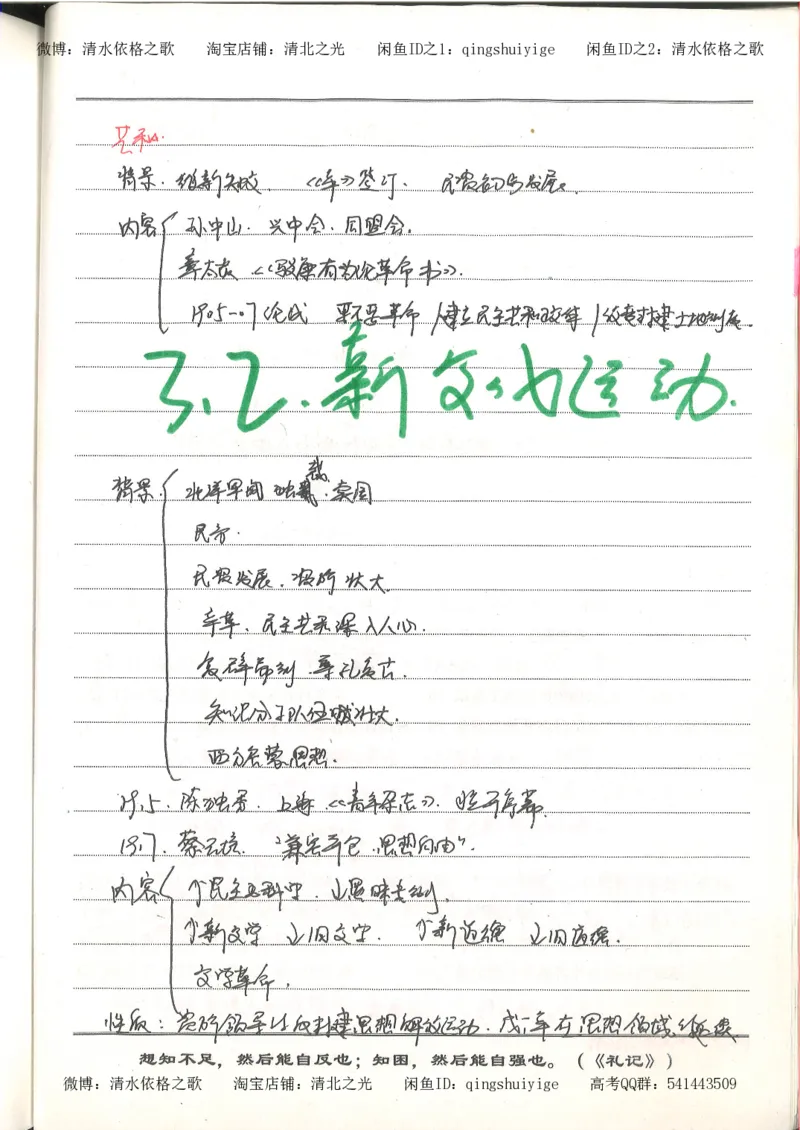 微博：清水依格之歌 淘宝店铺：清北之光 闲鱼ID之1：qingshuiyige 闲鱼ID之2：清水依格之歌
共和.
背景. 维新失败. 《辛》签订. 民资初步发展.
内容 孙中山. 兴中会. 同盟会.
章太炎《驳康有为论革命书》.
1905-07论战 要不要革命/建立民主共和政体/改变封建土地制度.
3.2.新文化运动.
背景. 北洋军阀 独裁. 卖国
民
民资发展. 资阶壮大.
辛革. 民主共和深入人心.
复辟帝制 尊孔复古.
知识分子队伍壮大.
西方启蒙思想.
19.5. 陈独秀. 上海《青年杂志》. 拉开序幕.
19.7. 蔡元培. "兼容并包 思想自由".
内容 ↑民主与科学. ↓愚昧专制.
↑新文学 ↓旧文学. ↑新道德 ↓旧道德.
文学革命.
性质：资阶领导 反封建思想解放运动. 在思想领域延续
想知不足，然后能自反也；知困，然后能自强也。（《礼记》）
微博：清水依格之歌 淘宝店铺：清北之光 闲鱼ID：qingshuiyige 高考QQ群：541443509